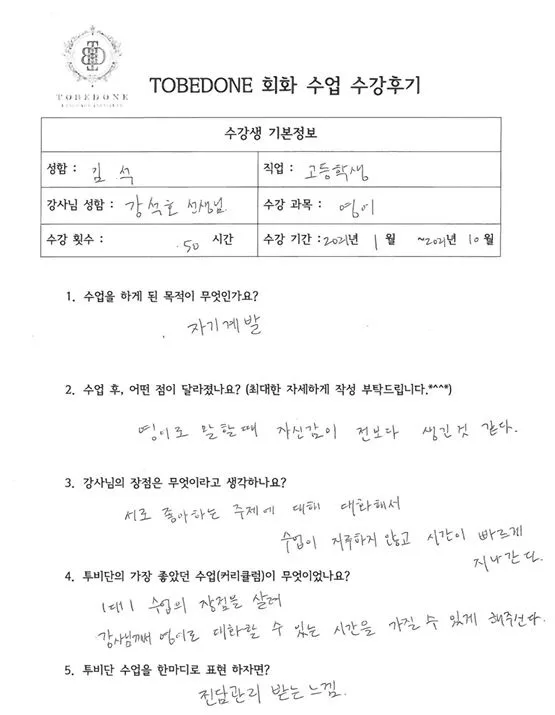 TOBEDONE
TOBEDONE 회화 수업 수강후기
수강생 기본정보
성함 : 김 석 직업 : 고등학생
강사님 성함 : 강석호 선생님 수강 과목 : 영어
수강 횟수 : 50 시간 수강 기간 : 2021년 1 월 ~2021년 10 월
1. 수업을 하게 된 목적이 무엇인가요?
자기계발
2. 수업 후, 어떤 점이 달라졌나요? (최대한 자세하게 작성 부탁드립니다.*^^*)
영어로 말할때 자신감이 전보다 생긴것 같다.
3. 강사님의 장점은 무엇이라고 생각하나요?
서로 좋아하는 주제에 대해 대화해서
수업이 지루하지 않고 시간이 빠르게
지나간다.
4. 투비단의 가장 좋았던 수업(커리큘럼)이 무엇이었나요?
1대1 수업의 장점을 살려
강사님께 영어로 대화할 수 있는 시간을 가질 수 있게 해주신다.
5. 투비단 수업을 한마디로 표현 하자면?
전담관리 받는 느낌.